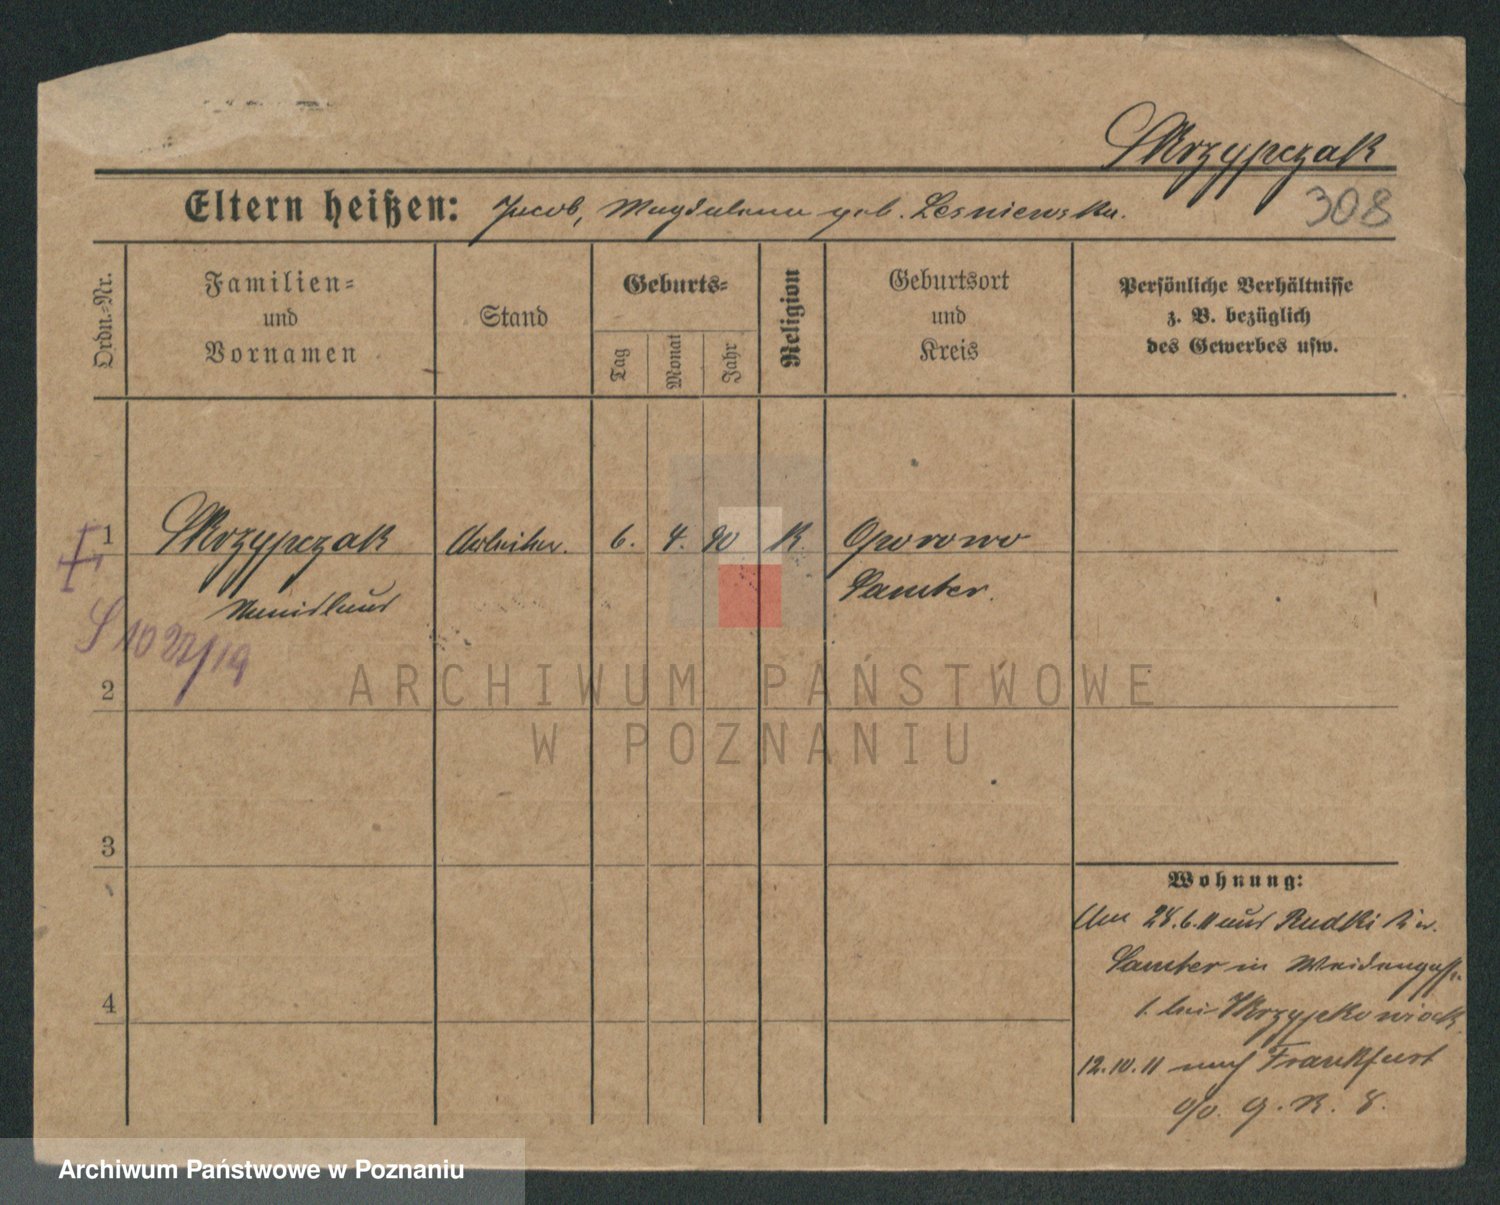 Skrzypczak
Eltern heißen: Jacob, Magdalena geb. Lesniewska.
308
Ordn.-Nr.
Familien-
und
Vornamen
Stand
Geburts-
Tag
Monat
Jahr
Religion
Geburtsort
und
Kreis
Persönliche Verhältnisse
z. B. bezüglich
des Gewerbes usw.
1 Skrzypczak Arbeiter. 6. 4. 90 K. Oporowo
Samter.
S 1022/19
2
ARCHIWUM PAŃSTWOWE
W POZNANIU
3
Wohnung:
Am 28.6.11 aus Rudki Kr.
Samter in Weidengasse
1. bei Skrzypkowiack
4
12.10.11 nach Frankfurt
a/o. G.R. 8.
Archiwum Państwowe w Poznaniu